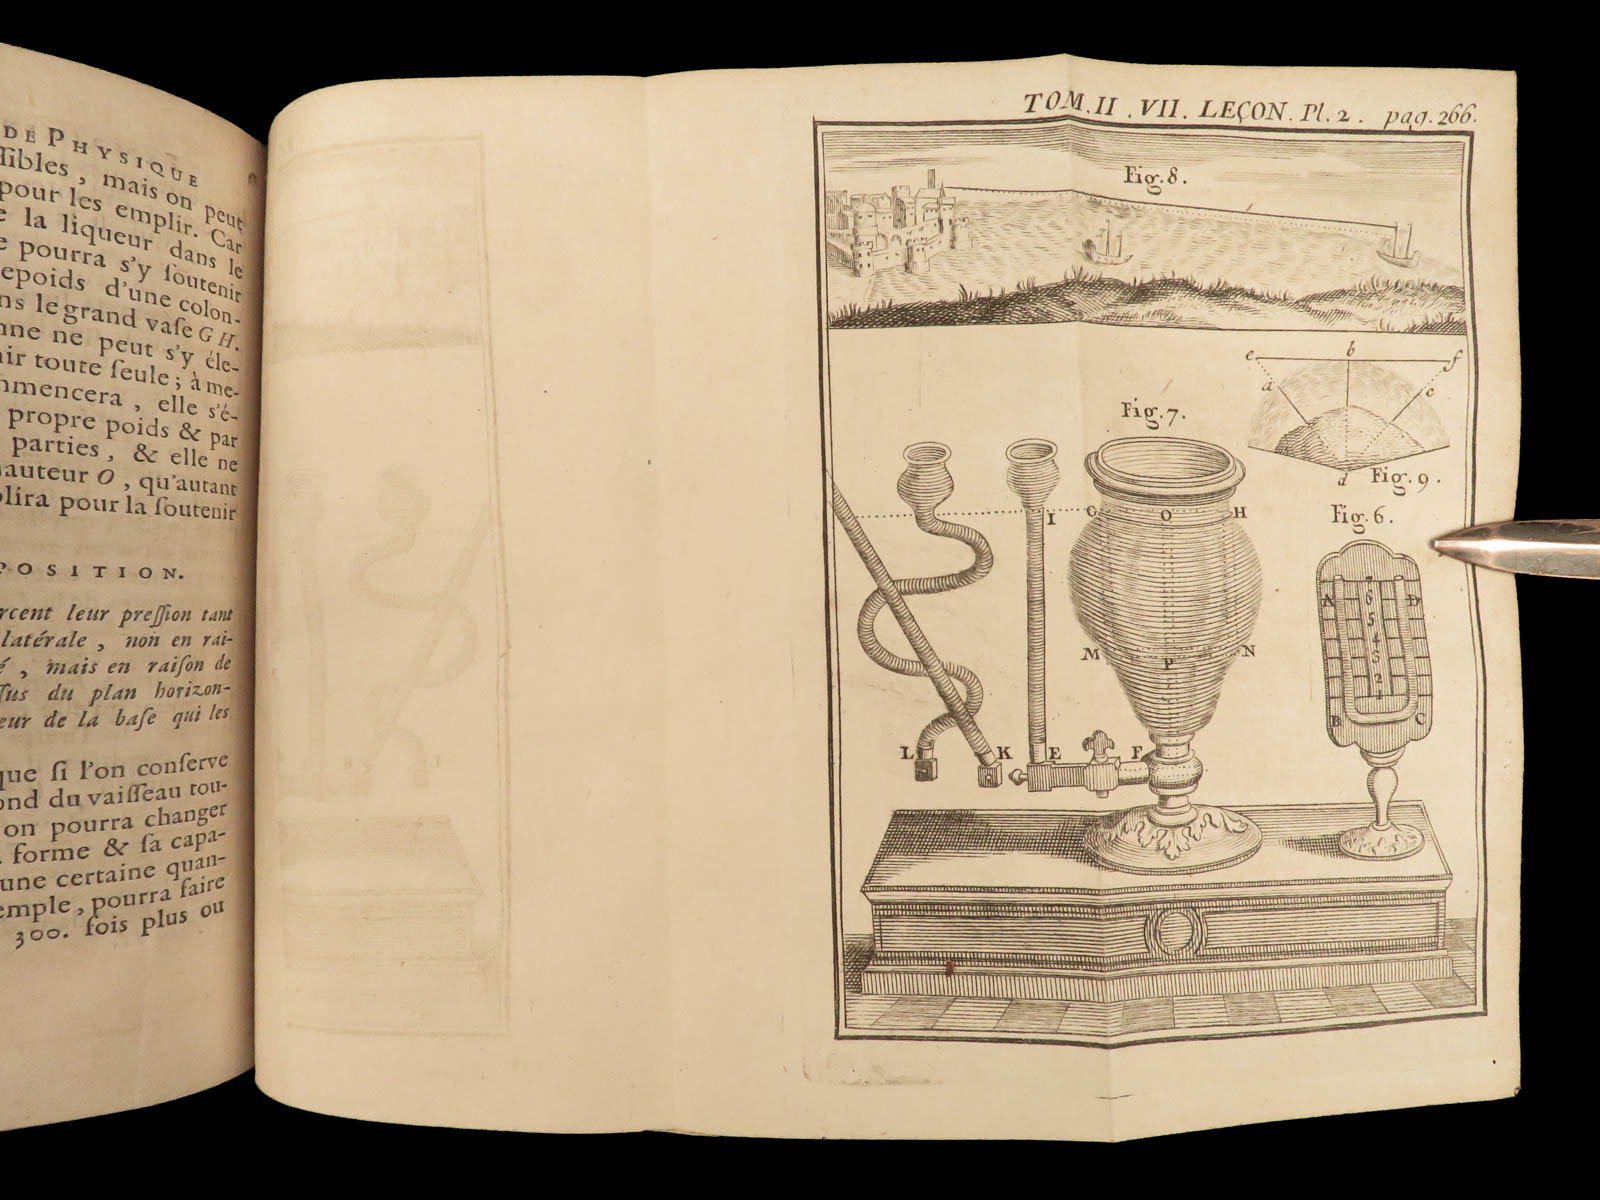 DE PHYSIQUE
ſibles, mais on peut
pour les emplir. Car
la liqueur dans le
pourra s'y ſoutenir
d'une colon-
le grand vaſe G H.
ne peut s'y éle-
toute ſeule ; à me-
, elle s'é-
propre poids & par
parties, & elle ne
hauteur O, qu'autant
plira pour la ſoutenir
POSITION.
leur preſſion tant
latérale, non en rai-
, mais en raiſon de
du plan horizon-
de la baſe qui les
que ſi l'on conſerve
du vaiſſeau tou-
on pourra changer
forme & ſa capa-
une certaine quan-
, pourra faire
300. fois plus ou
TOM. II. VII. LEÇON. Pl. 2. pag. 266.
Fig. 8.
e b f
a c
Fig. 7.
d Fig. 9.
Fig. 6.
I G O H
A 6 D
5
4
M P N 3
2
1
B C
L K E F